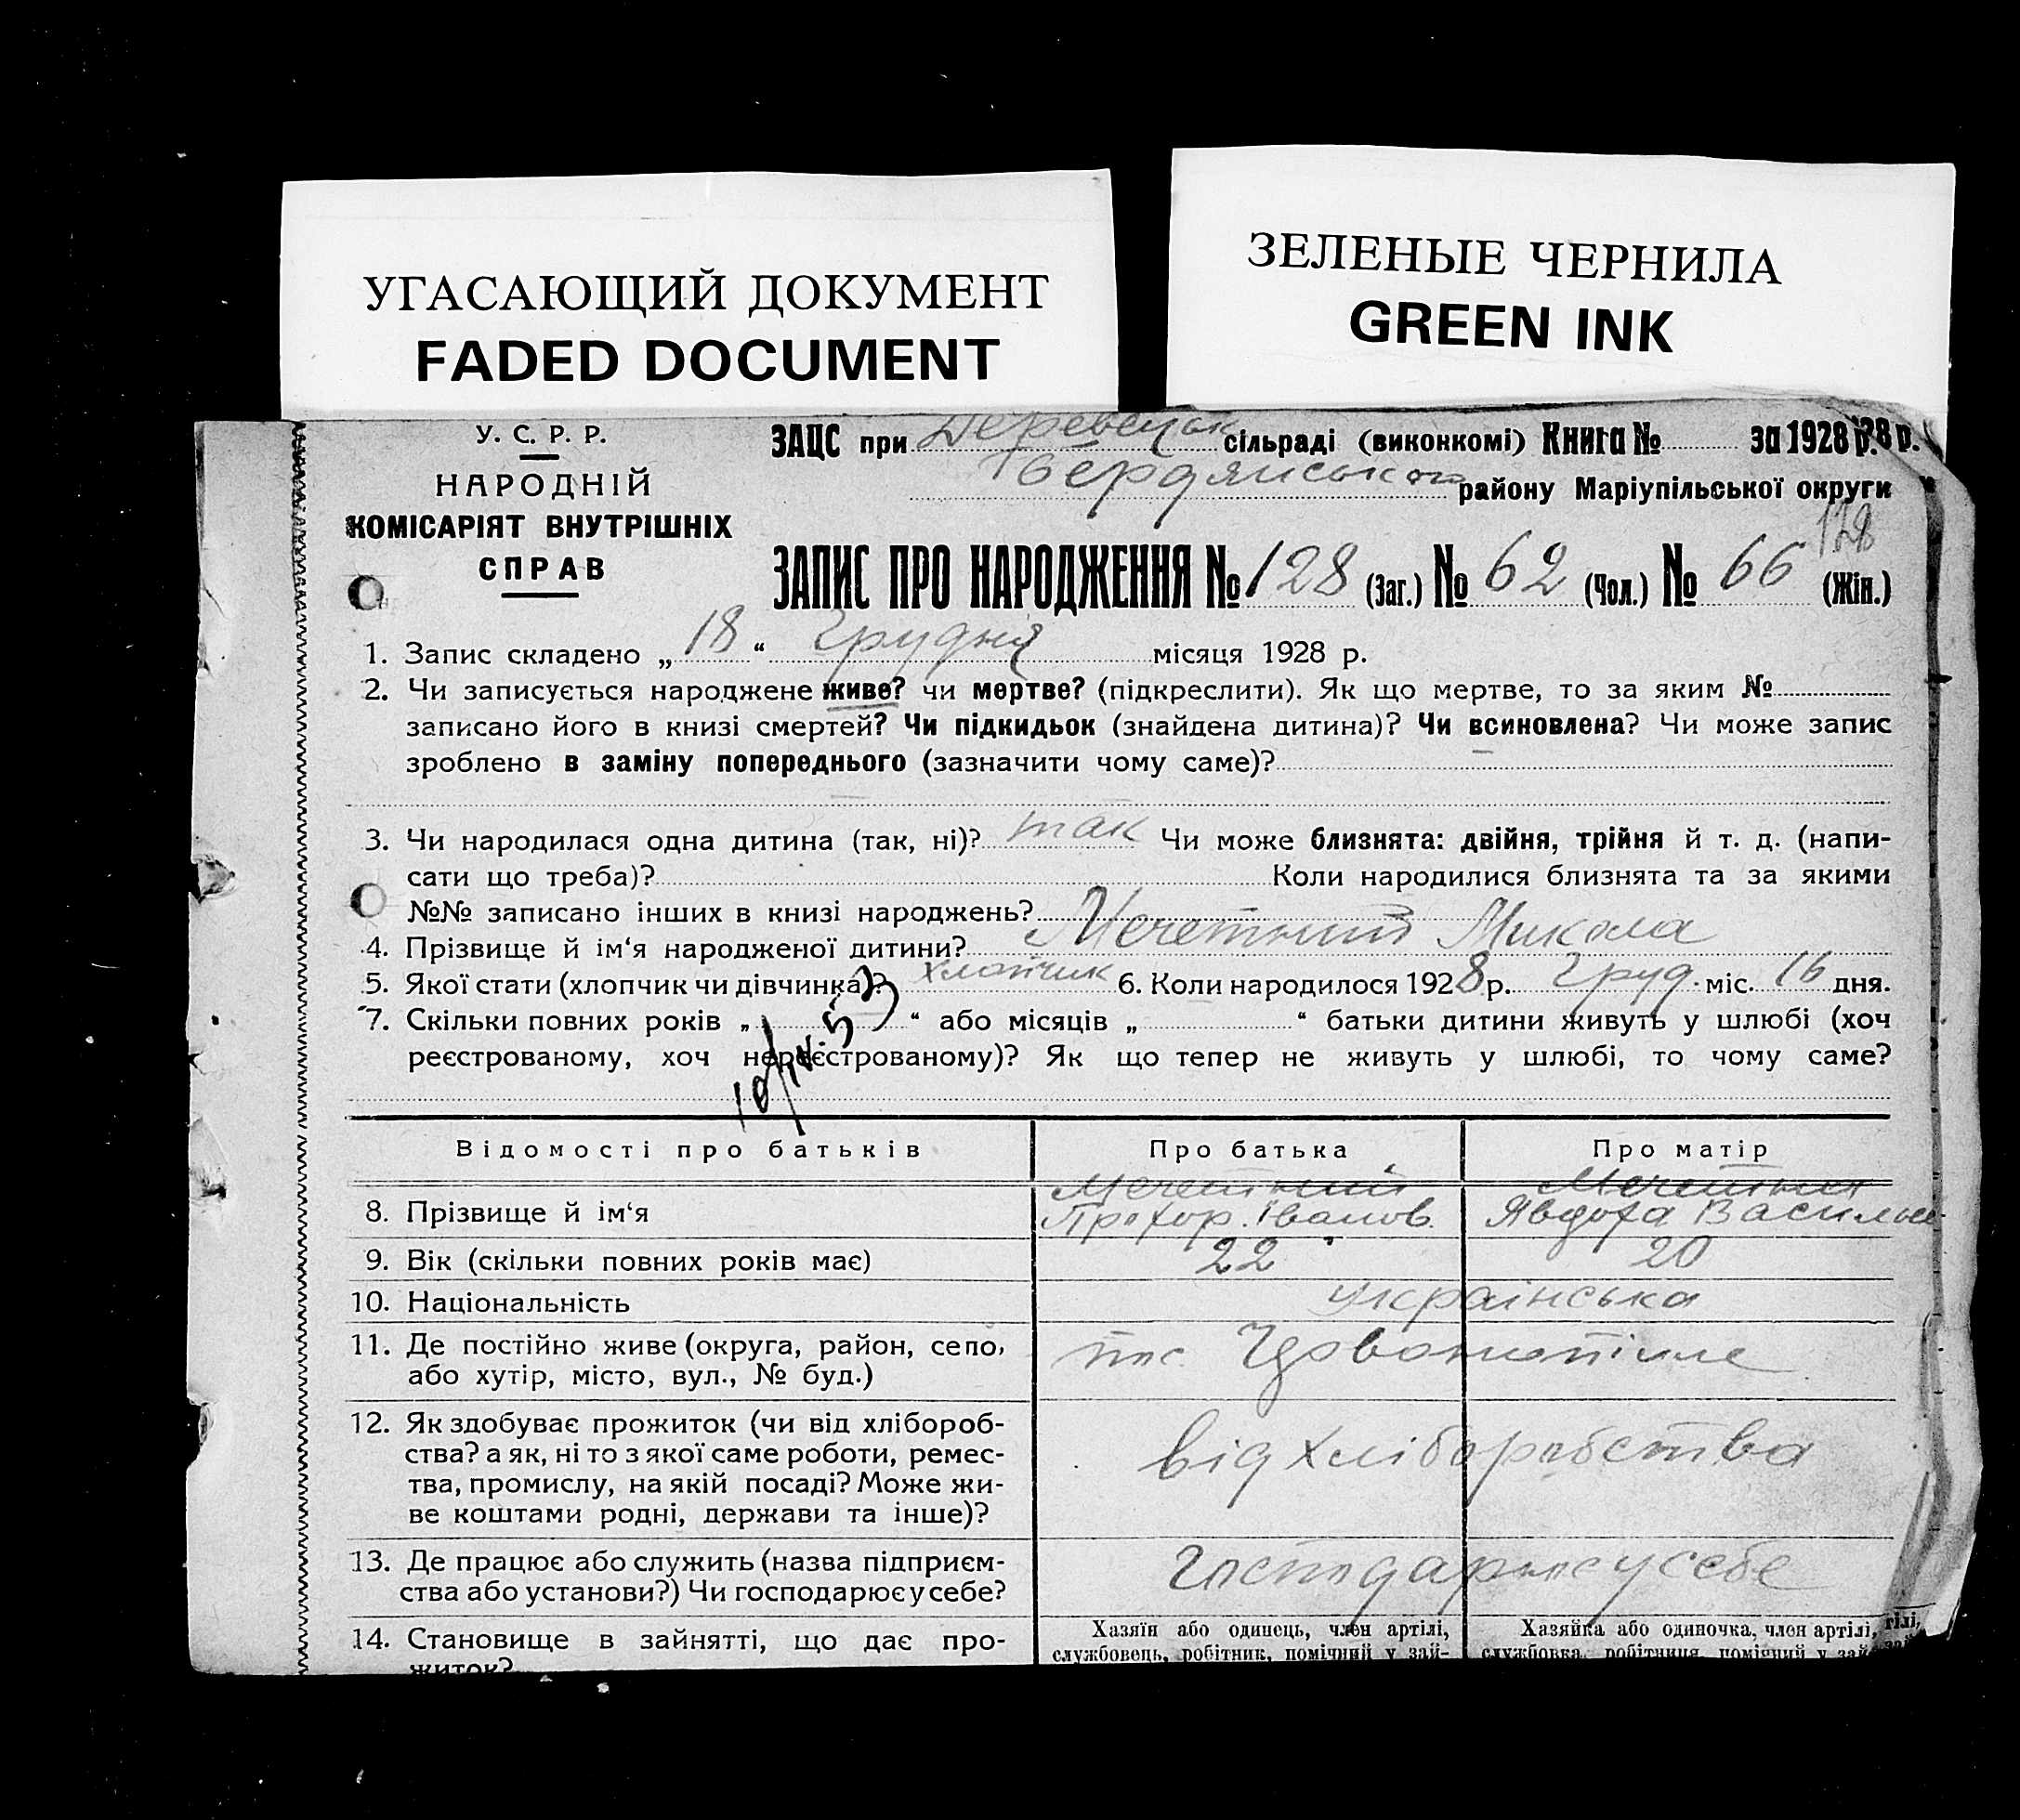 УГАСАЮЩИЙ ДОКУМЕНТ
FADED DOCUMENT
ЗЕЛЕНЫЕ ЧЕРНИЛА
GREEN INK
У. С. Р. Р.
НАРОДНІЙ
КОМІСАРІЯТ ВНУТРІШНІХ
СПРАВ
ЗАЦС при сільраді (виконкомі) Книга № за 1928 р. 28 р.
Бердянського району Маріупільської округи
128
ЗАПИС ПРО НАРОДЖЕННЯ № 128 (Заг.) № 62 (Чол.) № 66 (Жін.)
1. Запис складено „ 18 “ грудня місяця 1928 р.
2. Чи записується народжене живе? чи мертве? (підкреслити). Як що мертве, то за яким №
записано його в книзі смертей? Чи підкидьок (знайдена дитина)? Чи всиновлена? Чи може запис
зроблено в заміну попереднього (зазначити чому саме)?
3. Чи народилася одна дитина (так, ні)? так Чи може близнята: двійня, трійня й т. д. (напи-
сати що треба)? Коли народилися близнята та за якими
№№ записано інших в книзі народжень?
4. Прізвище й ім‘я народженої дитини? Мечетний Микола
5. Якої стати (хлопчик чи дівчинка)? хлопчик 6. Коли народилося 1928 р. груд. міс. 16 дня.
7. Скільки повних років „ “ або місяців „ “ батьки дитини живуть у шлюбі (хоч
реєстрованому, хоч нереєстрованому)? Як що тепер не живуть у шлюбі, то чому саме?
10/IV.53
Відомості про батьків Про батька Про матір
8. Прізвище й ім‘я Мечетний Прохор. Іванов. Мечетная Явдоха Василье
9. Вік (скільки повних років має) 22 20
10. Національність українська
11. Де постійно живе (округа, район, село,
або хутір, місто, вул., № буд.) пос.
12. Як здобуває прожиток (чи від хлібороб-
ства? а як, ні то з якої саме роботи, ремес-
тва, промислу, на якій посаді? Може жи-
ве коштами родні, держави та інше)?
від хліборобства
13. Де працює або служить (назва підприєм-
ства або установи?) Чи господарює у себе?
господарює у себе
14. Становище в зайнятті, що дає про-
житок?
Хазяїн або одинець, член артілі,
службовець, робітник, помічний у зай-
Хазяйка або одиночка, член артілі, тілі,
службовка, робітниця, помічний у зай